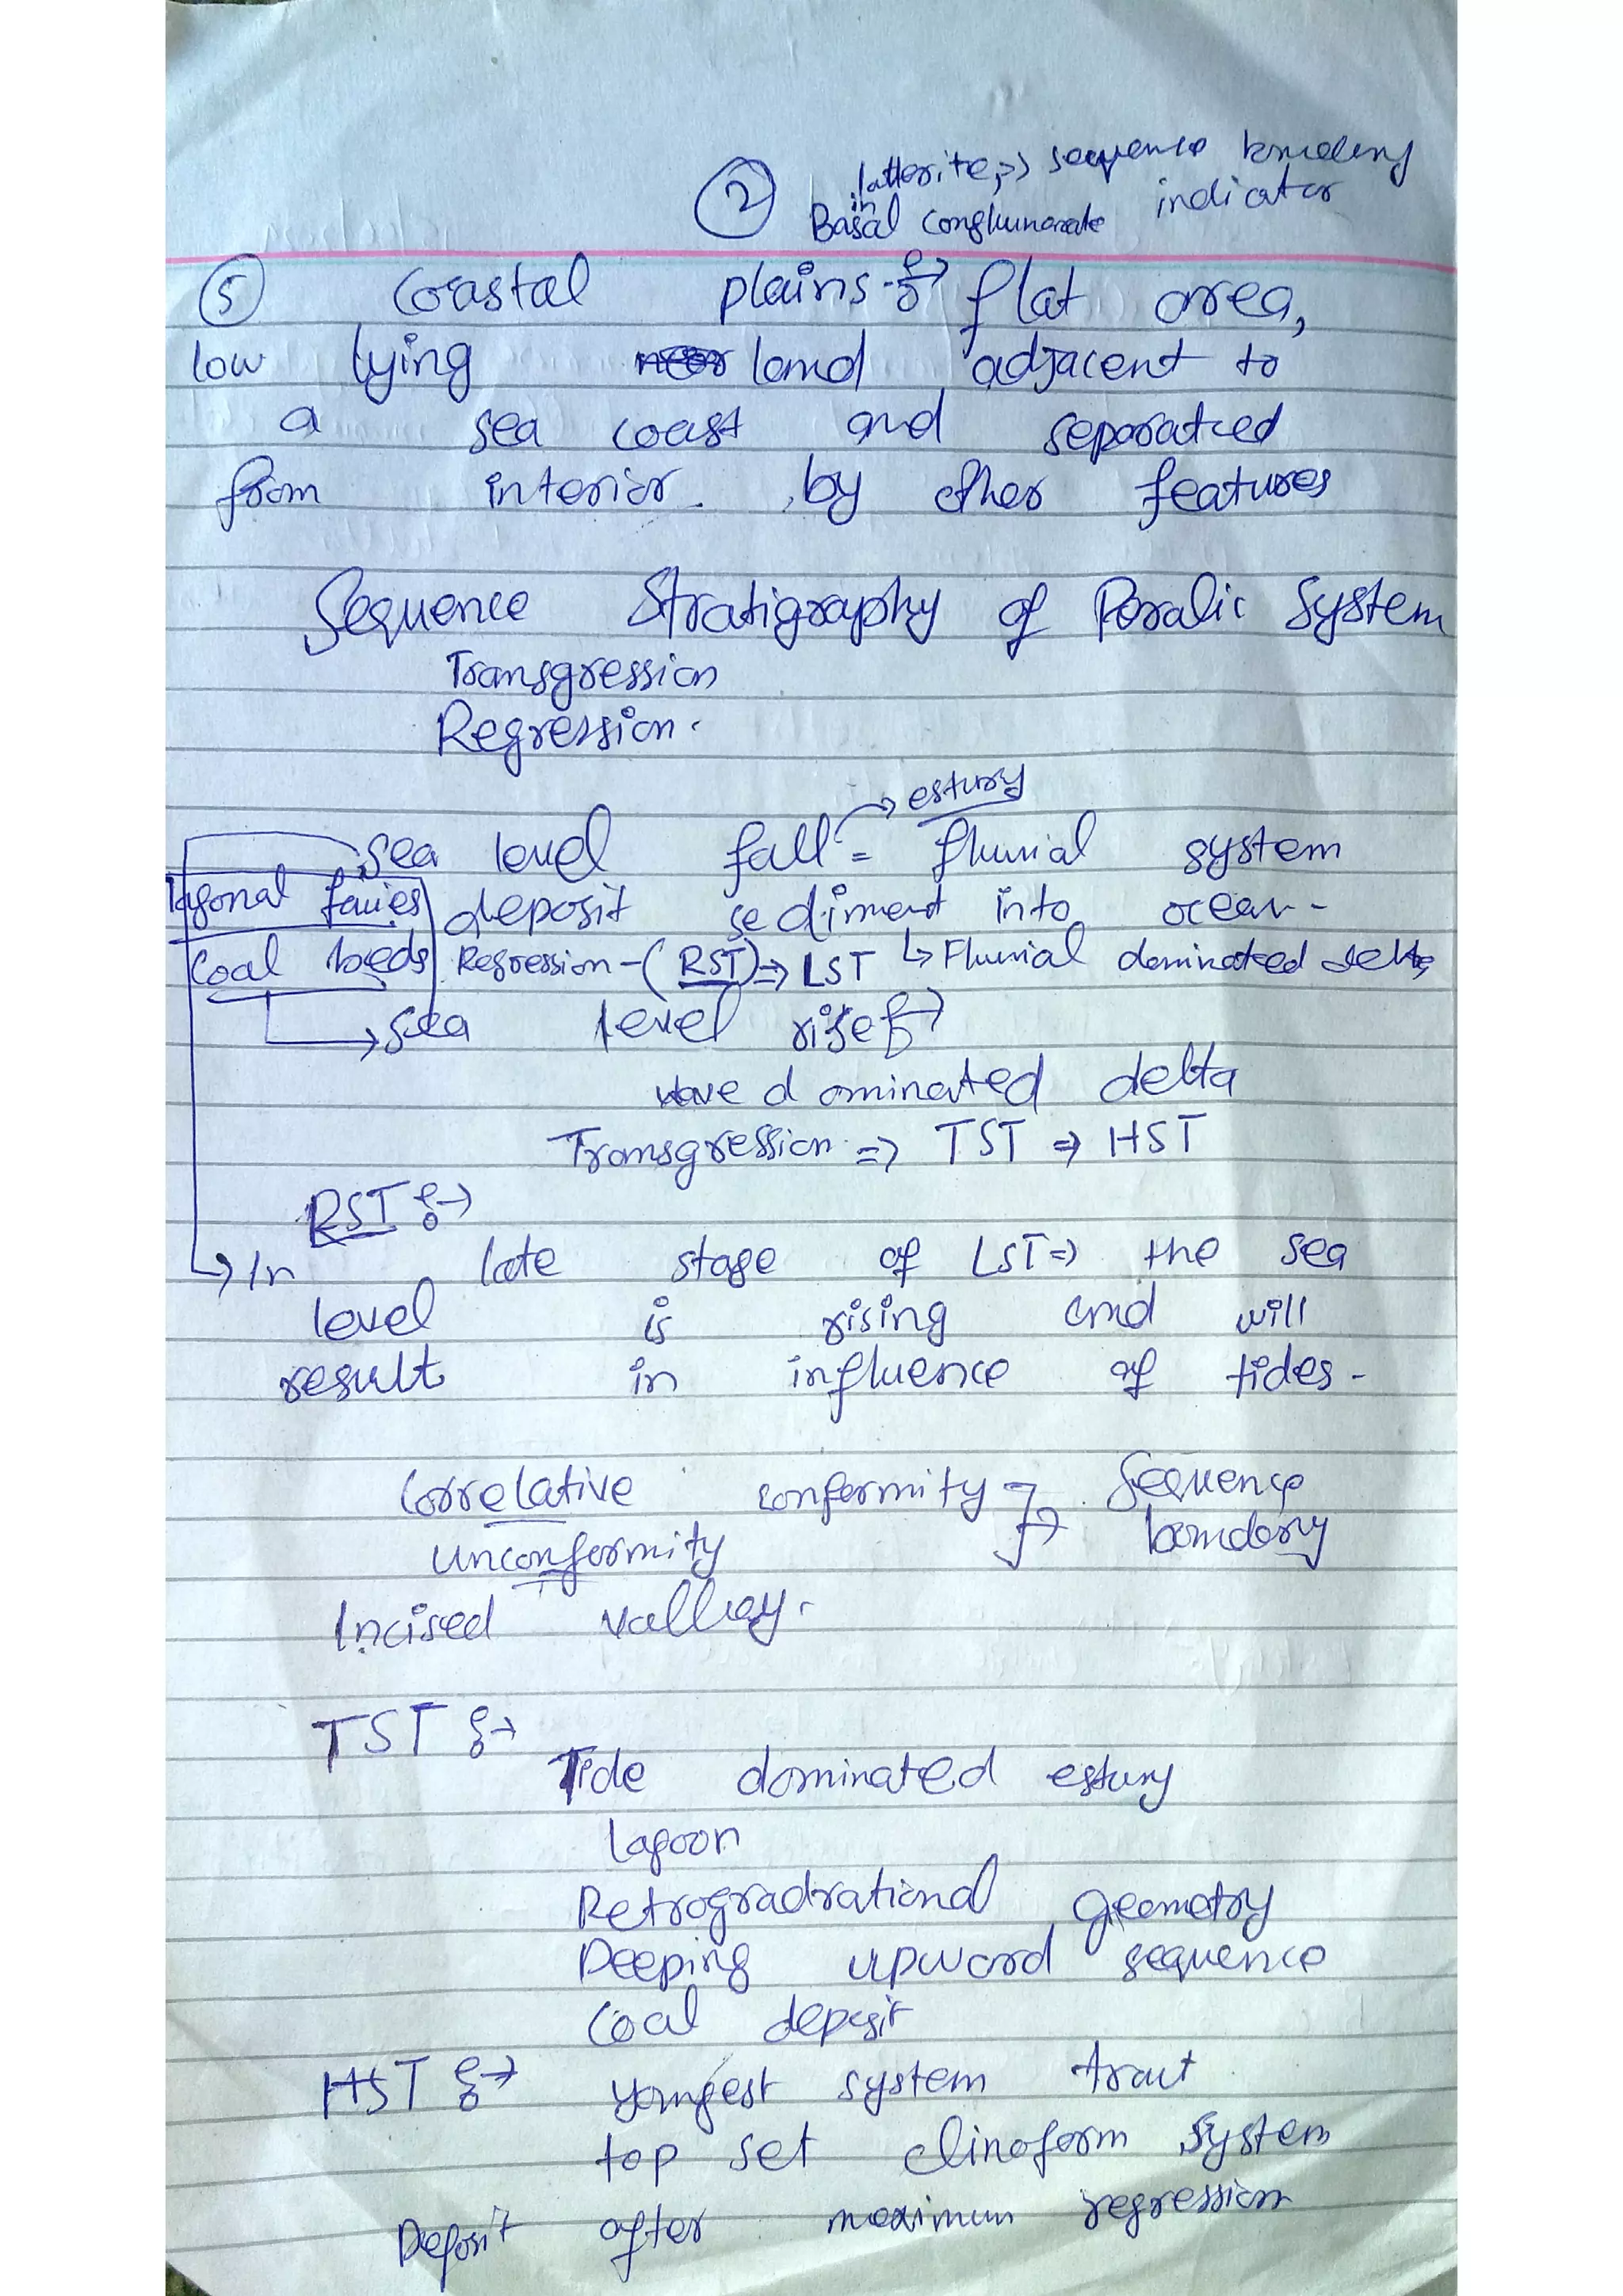 ② latterite => sequence boundery
in
Basal conglumorate indicator
⑤ Coastal plains :-> flat area,
low lying land adjacent to
a sea coast and separatced
from interior. by other features
Sequence Stratigraphy of Paralic System
Transgression
Regression.
-> estury
sea level fall = fluvial system
lagonal facies deposit sediment into ocean -
Coal beds Regression - (RST) => LST ↳ Fluvial dominated delta
-> sea level rise :->
wave dominated delta
Transgression => TST => HST
RST :->
-> In late stage of LST => the sea
level is rising and will
result in influence of tides -
Correlative conformity -> Sequence
unconformity boundary
Incised valley.
TST :->
Tide dominated estury
lagoon
Retrogradrational geometry
Deeping upward sequence
Coal deposit
HST :-> youngest system tract
top set clinoform system
Deposit after maximum regression